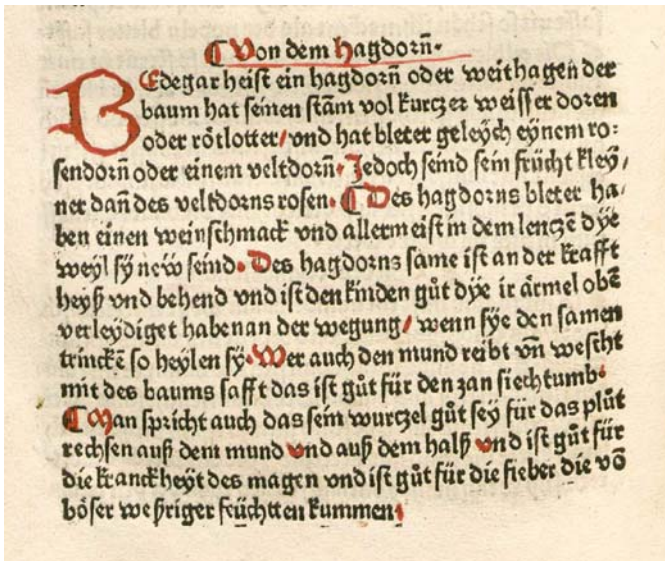 ¶ Von dem Hagdorn̄.
BEdegar heist ein hagdorn̄ oder weithagen der
baum hat seinen stam̄ vol kurczer weisser doren
oder roͤtlotter/ vnd hat bleter geleÿch eÿnem ro⸗
sendorn̄ oder einem veltdorn̄. Jedoch seind sein fruͤcht kleÿ/
ner dan̄ des veltdorns rosen. ¶ Des hagdorns bleter ha/
ben einen weinschmack vnd allermeist in dem lenczē dÿe
weÿl sÿ neẅ seind. Des hagdorns same ist an der krafft
heÿß vnd behend vnd ist den kinden guͦt dÿe ir aͤrmel obē
verleÿdiget haben an der wegung/ wenn sÿe den samen
trinckē so heÿlen sÿ. Wer auch den mund reibt vn̄ wescht
mit des baums safft das ist guͦt fuͤr den zan siechtumb.
¶ Man spricht auch das sein wurczel guͦt seÿ fuͤr das pluͦt
rechsen auß dem mund vnd auß dem halß vnd ist guͦt fuͤr
die kranckheÿt des magen vnd ist guͦt fuͤr die fieber die vō
boͤser weßriger feuͤchtten kummen.